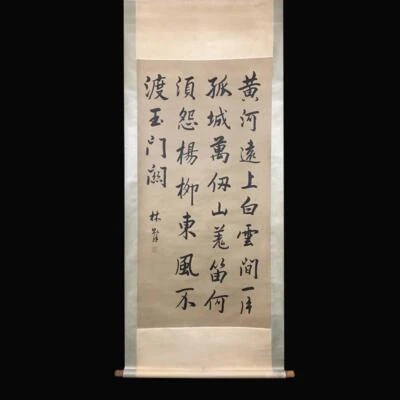 黄河遠上白雲間一片
孤城萬仞山羌笛何
須怨楊柳東風不
渡玉門關
林